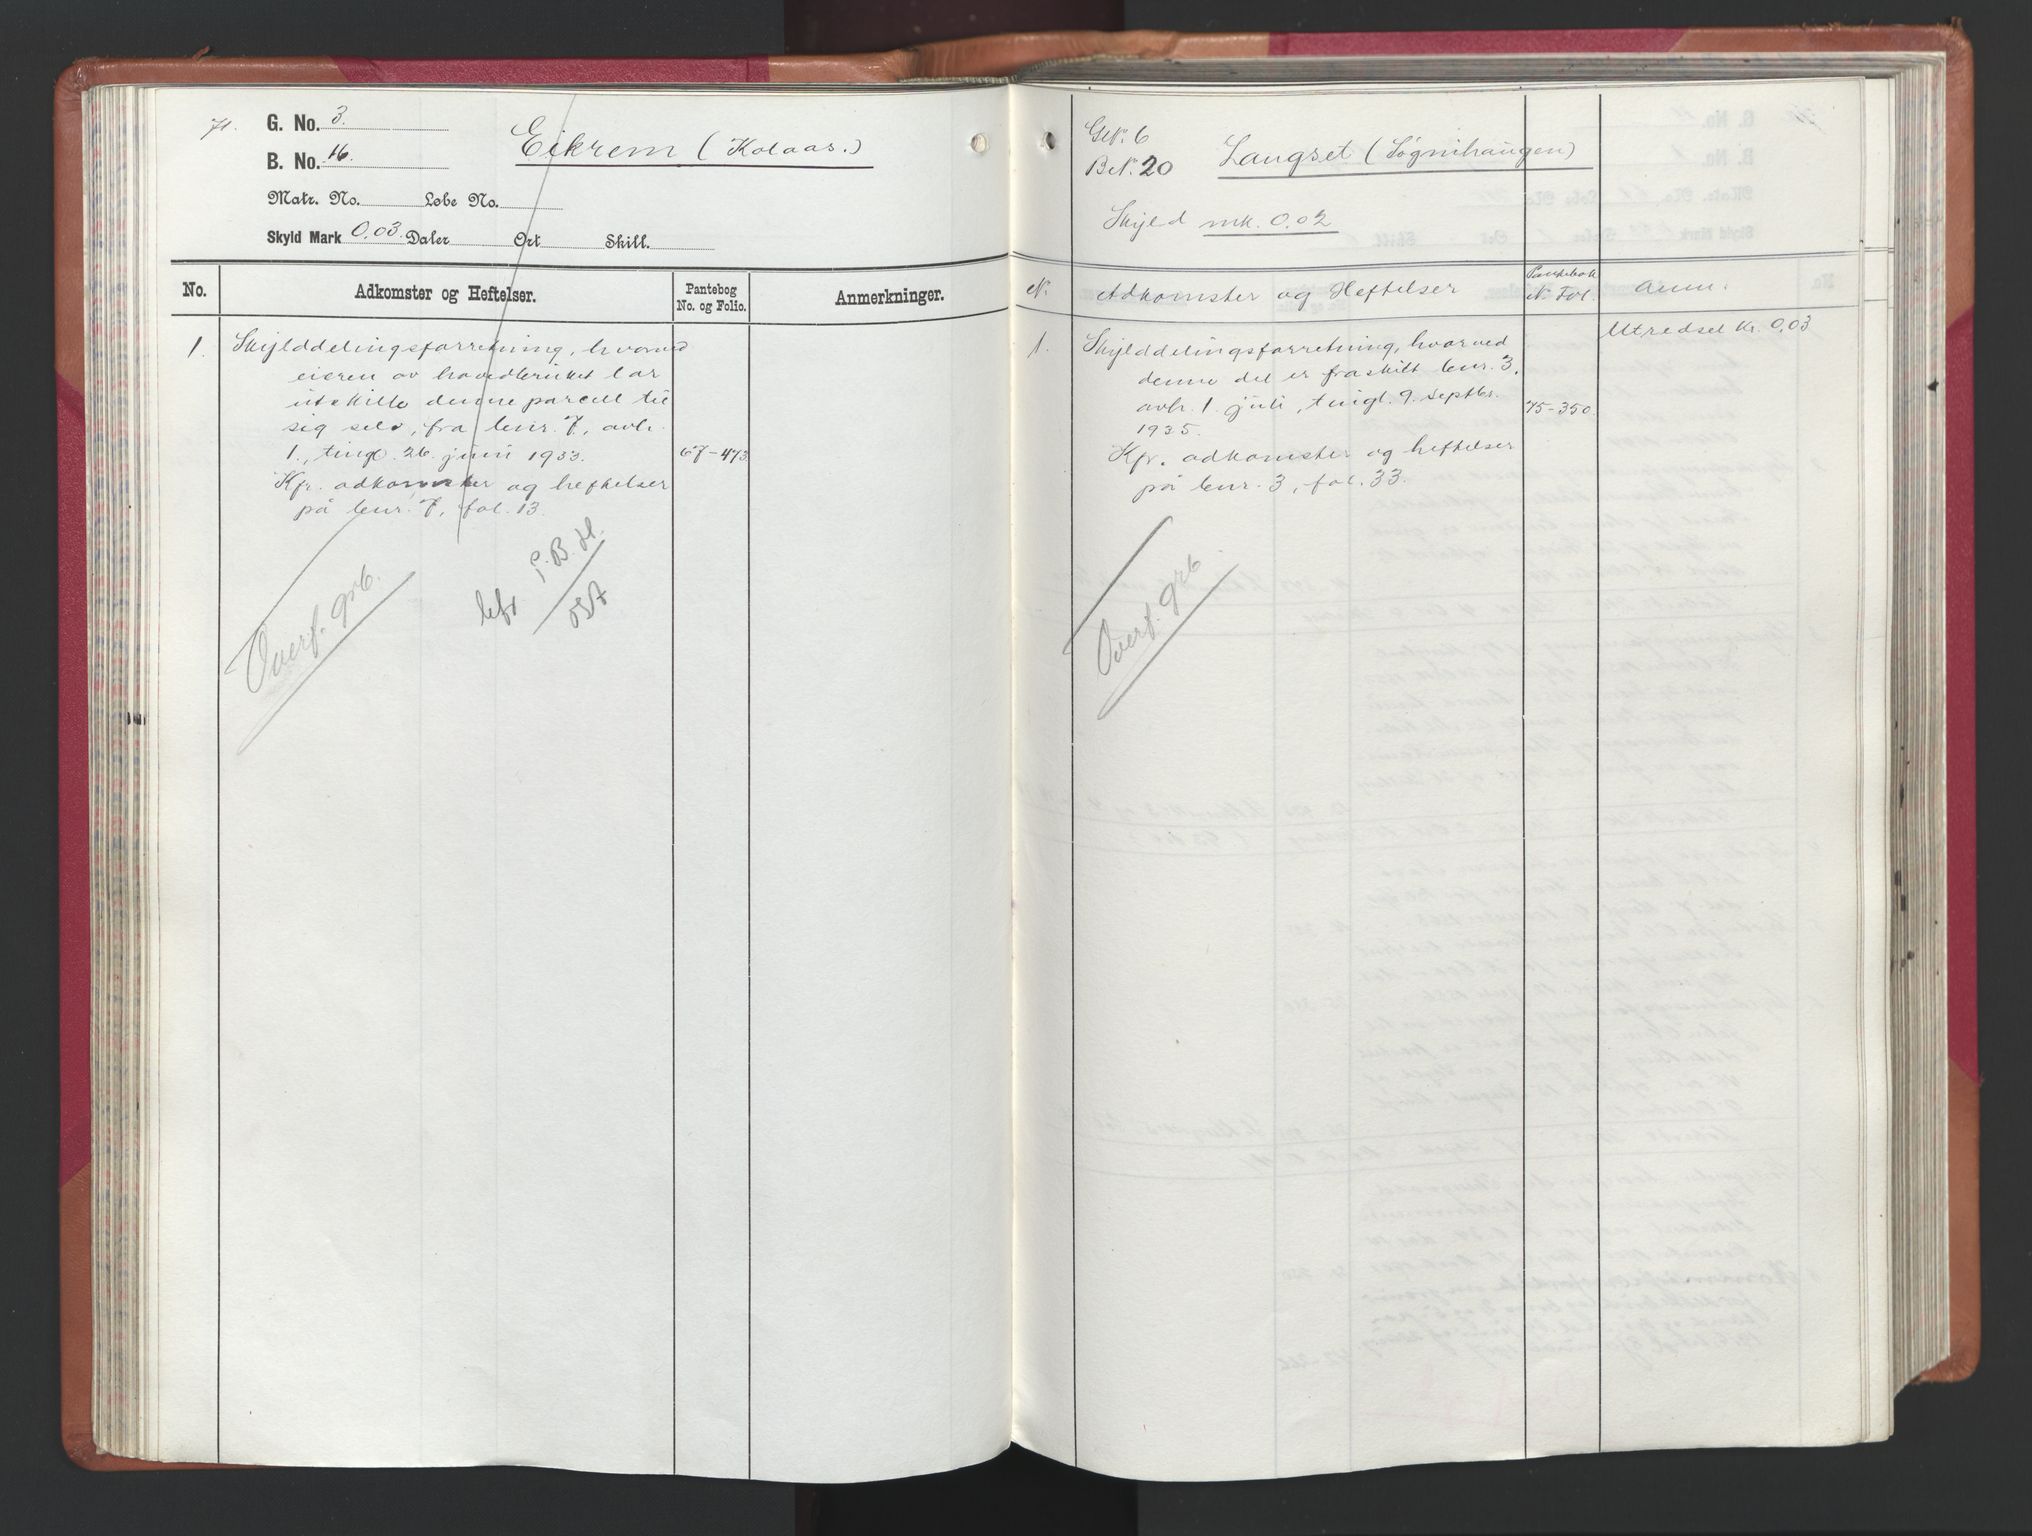 71.
G. No. 3.
B. No. 16.
Eikrem (Kolaas.)
Matr. No. Løbe No.
Skyld Mark 0,03. Daler Ort Skill.
No. Adkomster og Heftelser. Pantebog No. og Folio. Anmerkninger.
1. Skylddelingsforretning, hvorved
eieren av hovedbruket lar
utskille denne parcell til
sig selv, fra bnr. 7, avh.
1., tingl. 26. juni 1933. 67-473
Kfr. adkomster og heftelser
på bnr. 7, fol. 13.
Overf. grb.
G.No. 6
B.No. 20
Langset (Søgnihaugen)
Skyld mk. 0,02
No. Adkomster og Heftelser Pantebok No. Fol. Anm.
1. Skylddelingsforretning, hvorved Utredsel kr. 0,03
denne del er fraskilt bnr. 3,
avh. 1. juli, tingl. 9. septbr. 75-350.
1935.
Kfr. adkomster og heftelser
på bnr. 3, fol. 33.
Overf. grb